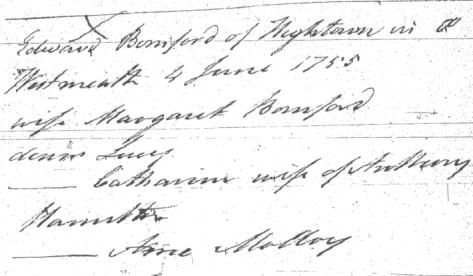 Edward Bomford of Hightown in Co
Westmeath 4 June 1755
wife Margaret Bomford
daurs Lucy
—— Catharine wife of Anthony
Hamilton
—— Anne Molloy